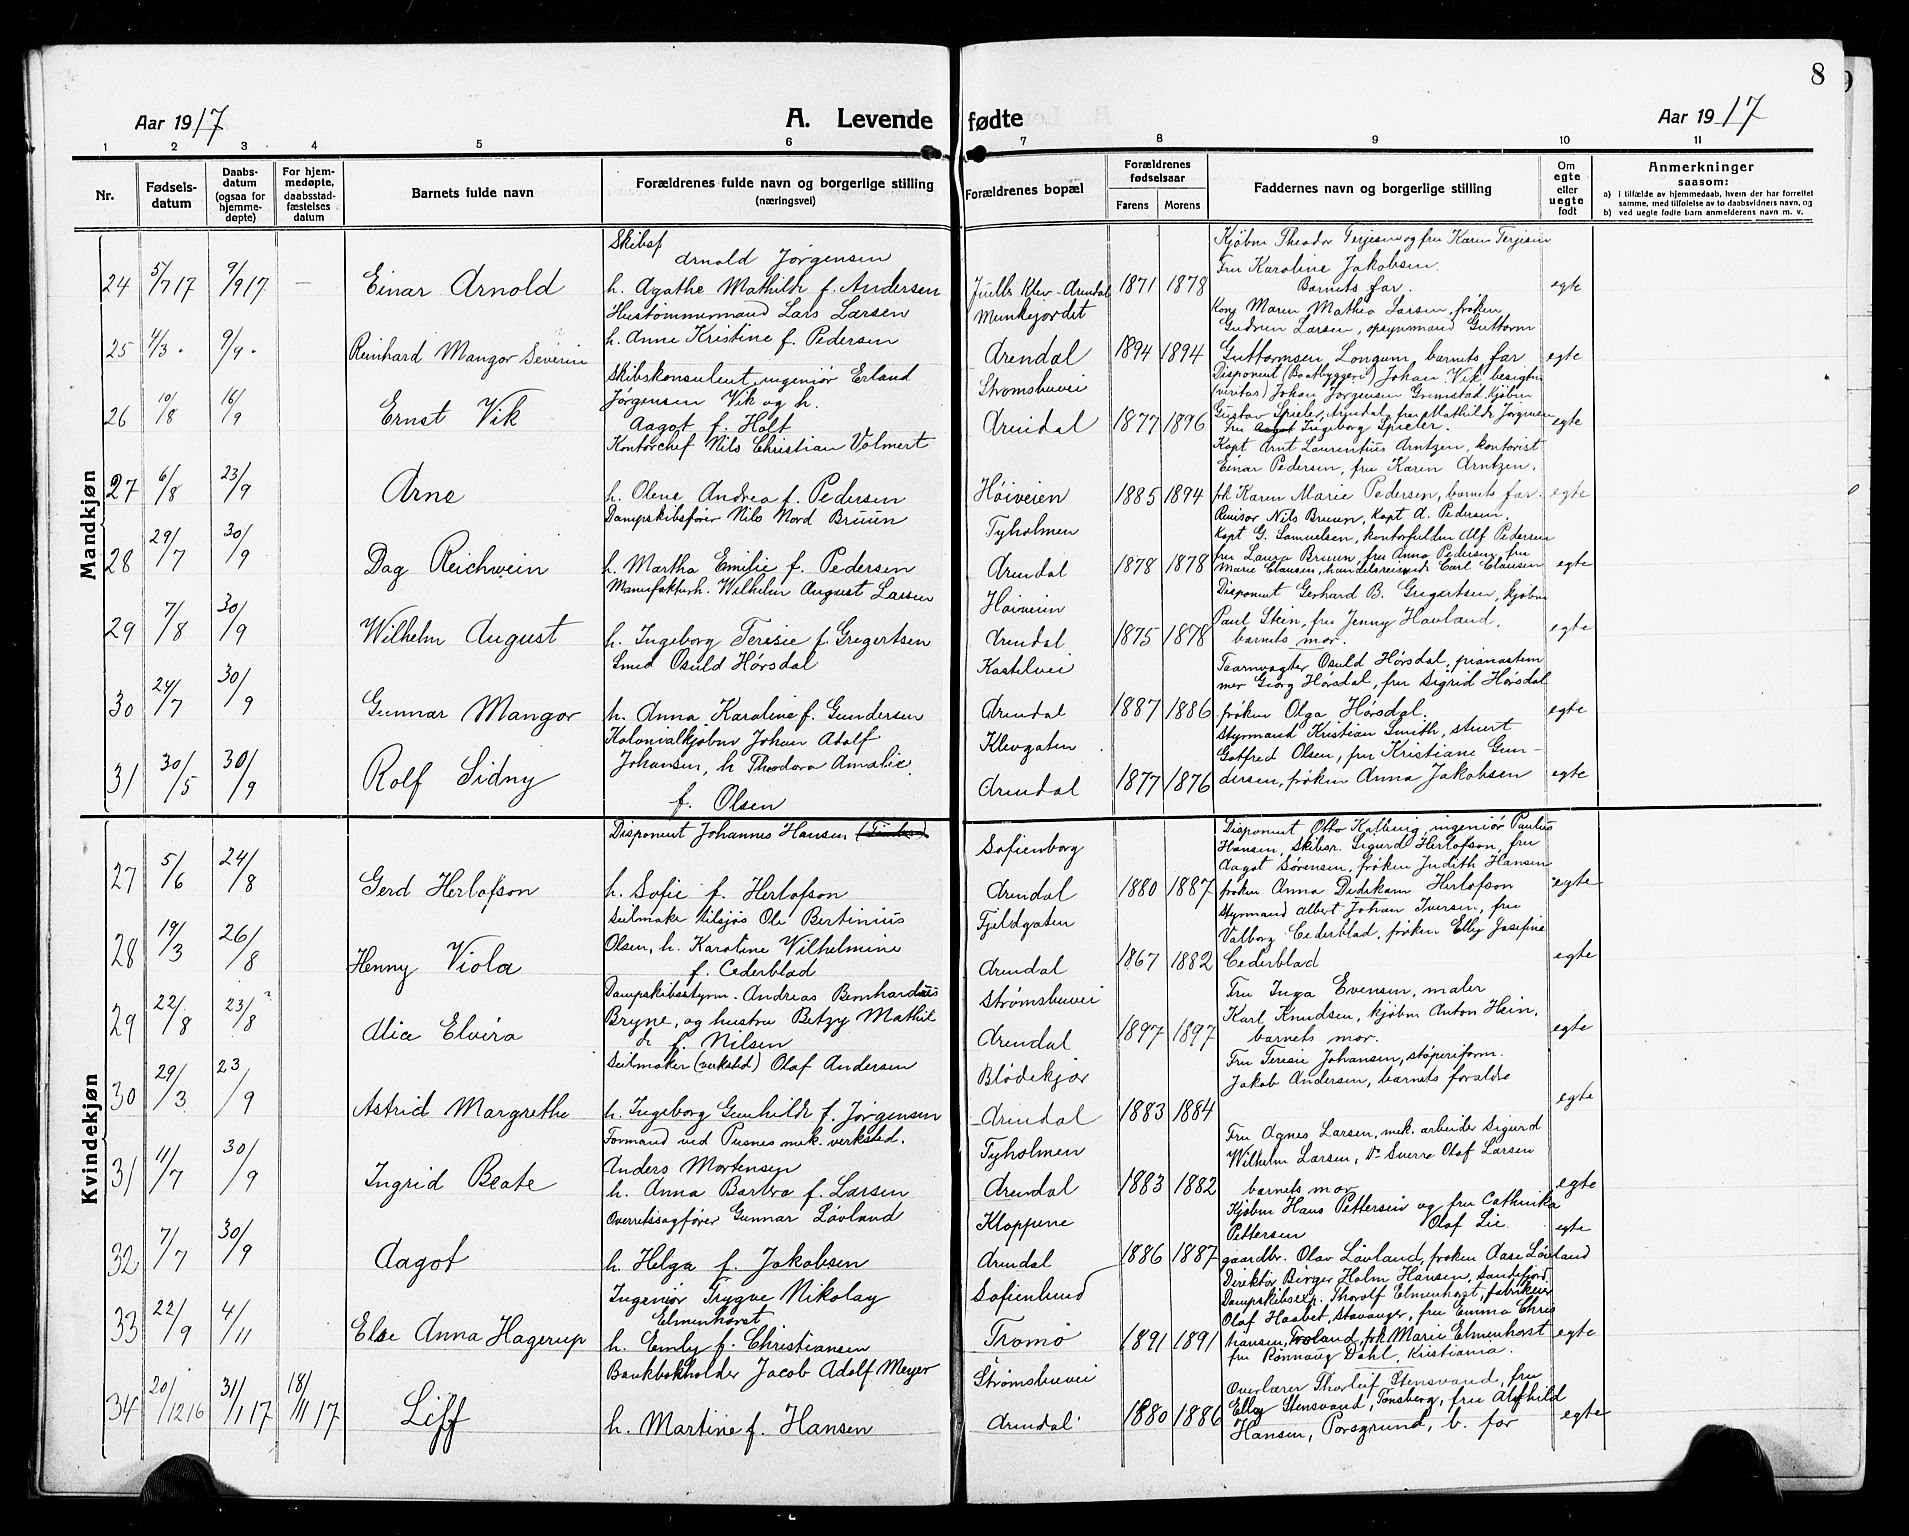 8
Aar 1917 A. Levende fødte Aar 1917
1 2 3 4 5 6 7 8 9 10 11
Nr.
Fødsels-
datum
Daabs-
datum
(ogsaa for
hjemme-
døpte)
For hjem-
medøpte,
daabsstad-
fæstelses
datum
Barnets fulde navn
Forældrenes fulde navn og borgerlige stilling
(næringsvei)
Forældrenes bopæl
Forældrenes
fødselsaar
Farens Morens
Faddernes navn og borgerlige stilling
Om
egte
eller
uegte
født
Anmerkninger
saasom:
a) i tilfælde av hjemmedaab, hvem der har forrettet
samme, med tilføielse av to daabsvidners navn, og
b) ved uegte fødte barn anmelderens navn m. v.
Mandkjøn
24 5/7 17 9/9 17 — Einar Arnold
Skibsf
Arnold Jørgensen
h. Agathe Mathilde f. Andersen
Juells Klev Arendal 1871 1878
Kjøbm Theodor Terjesen og fru Karen Terjesen
Fru Karoline Jakobsen.
Barnets far.
egte
25 4/3 . 9/9 . Reinhard Mangor Severin
Hustømmermand Lars Larsen
h. Anne Kristine f. Pedersen
Munkejordet
Arendal 1894 1894
Konj Maren Mathea Larsen, frøken
Gudrun Larsen, opsynsmand Guttorm
Guttormsen, Longum, barnets far
egte
26 10/8 16/9 Ernst Vik
Skibskonsulent, ingeniør Erland
Jørgensen Vik og h.
Aagot f. Holt
Strømsbuvei
Arendal 1877 1896
Disponent (Baatbyggeri) Johan Vik, besigtm
(veritas) Johan Jørgensen Grimstad, kjøbm
Gustav Spieler, Arendal, fru Mathilde Jørgensen
Fru Ingeborg Spieler.
egte
27 6/8 23/9 Arne
Kontorchef Nils Christian Volmert
h. Olene Andrea f. Pedersen
Høiveien 1885 1894
Kapt Arnt Laurentius Arntzen, kontorist
Einar Pedersen, fru Karen Arntzen,
frk Karen Marie Pedersen, barnets far.
egte
28 29/7 30/9 Dag Reichwein
Dampskibsfører Nils Nord Bruun
h. Martha Emilie f. Pedersen
Tyholmen
Arendal 1878 1878
Revisor Nils Bruun, Kapt A. Pedersen,
Kapt G. Samuelsen, kontorfuldm Alf Pedersen
fru Laura Bruun, fru Anna Pedersen, fru
Marie Clausen, handelsreisende Carl Clausen
egte
29 7/8 30/9 Wilhelm August
Manufakturh. Wilhelm August Larsen
h. Ingeborg Teresie f. Gregertsen
Høiveien
Arendal 1875 1878
Disponent Gerhard B. Gregertsen, kjøbm
Paul Stein, fru Jenny Havland,
barnets mor.
egte
30 24/7 30/9 Gunnar Mangor
Smed Osuld Hørsdal
h. Anna Karoline f. Gundersen
Kastelvei
Arendal 1887 1886
Taarnvagter Osuld Hørsdal, pianostem
mer Georg Hørsdal, fru Sigrid Hørsdal
frøken Olga Hørsdal.
egte
31 30/5 30/9 Rolf Sidny
Kolonialkjøbm Johan Adolf
Johansen, h Theodora Amalie
f. Olsen
Klevgaten
Arendal 1877 1876
Styrmand Kristian Smith, stuert
Gotfred Olsen, fru Kristiane Gun-
dersen, frøken Anna Jakobsen
egte
Kvindekjøn
27 5/6 24/8 Gerd Herlofson
Disponent Johannes Hansen
h. Sofie f. Herlofson
Sofienborg
Arendal 1880 1887
Disponent Otto Kalbvig, ingeniør Paulus
Hansen, skibsr. Sigurd Herlofson, fru
Aagot Sørensen, frøken Judith Hansen
frøken Anna Dedekam Herlofson
egte
28 19/3 26/8 Henny Viola
Seilmaker tilsjøs Ole Bertinius
Olsen, h. Karoline Wilhelmine
f. Cederblad
Fjeldgaten
Arendal 1867 1882
Styrmand Albert Johan Iversen, fru
Valborg Cederblad, frøken Elly Josefine
Cederblad
egte
29 22/8 23/8 ? Alice Elvira
Dampskibsstyrm. Andreas Bernhardus
Bryne, og hustru Betzy Mathil
de f. Nilsen
Strømsbuvei
Arendal 1897 1897
Fru Inga Evensen, maler
Karl Knudsen, kjøbm Anton Hein,
barnets mor.
egte
30 29/3 23/9 Astrid Margrethe
Seilmaker (verksted) Olaf Andersen
h. Ingeborg Gunhilde f. Jørgensen
Blødekjær
Arendal 1883 1884
Fru Teresie Johansen, støperiform.
Jakob Andersen, barnets foraldre
egte
31 11/7 30/9 Ingrid Beate
Formand ved Pusnes mek. verksted.
Anders Mortensen
h. Anna Barbra f. Larsen
Tyholmen
Arendal 1883 1882
Fru Agnes Larsen, mek. arbeider Sigurd
Wilhelm Larsen, Do Sverre Olaf Larsen
barnets mor
egte
32 7/7 30/9 Aagot
Overretssagfører Gunnar Løvland
h. Helga f. Jakobsen
Kloppene
Arendal 1886 1887
Kjøbm Hans Pettersen og fru Cathinka
Pettersen Olaf Lie
gaardbr. Olav Løvland, frøken Aase Løvland
egte
33 22/9 4/11 Else Anna Hagerup
Ingeniør Trygve Nikolay
Elmenhorst
h. Emly f. Christiansen
Sofienlund
Tromø 1891 1891
Direktør Birger Holm Hansen, Sandefjord,
Dampskibsexp. Thorolf Elmenhorst, fabrikeier
Olaf Haabet, Stavanger, fru Emma Chris
tiansen, Troland, frk Marie Elmenhorst
fru Rønnaug Dahl, Kristiania.
egte
34 20/12 16 31/1 17 18/11 17 Liff
Bankbokholder Jacob Adolf Meyer
h. Martine f. Hansen
Strømsbuvei
Arendal 1880 1886
Overlærer Thorleif Stensvand, fru
Elley Stensvand, Tønsberg, fru Alfhild
Hansen, Porsgrund, b. far
egte